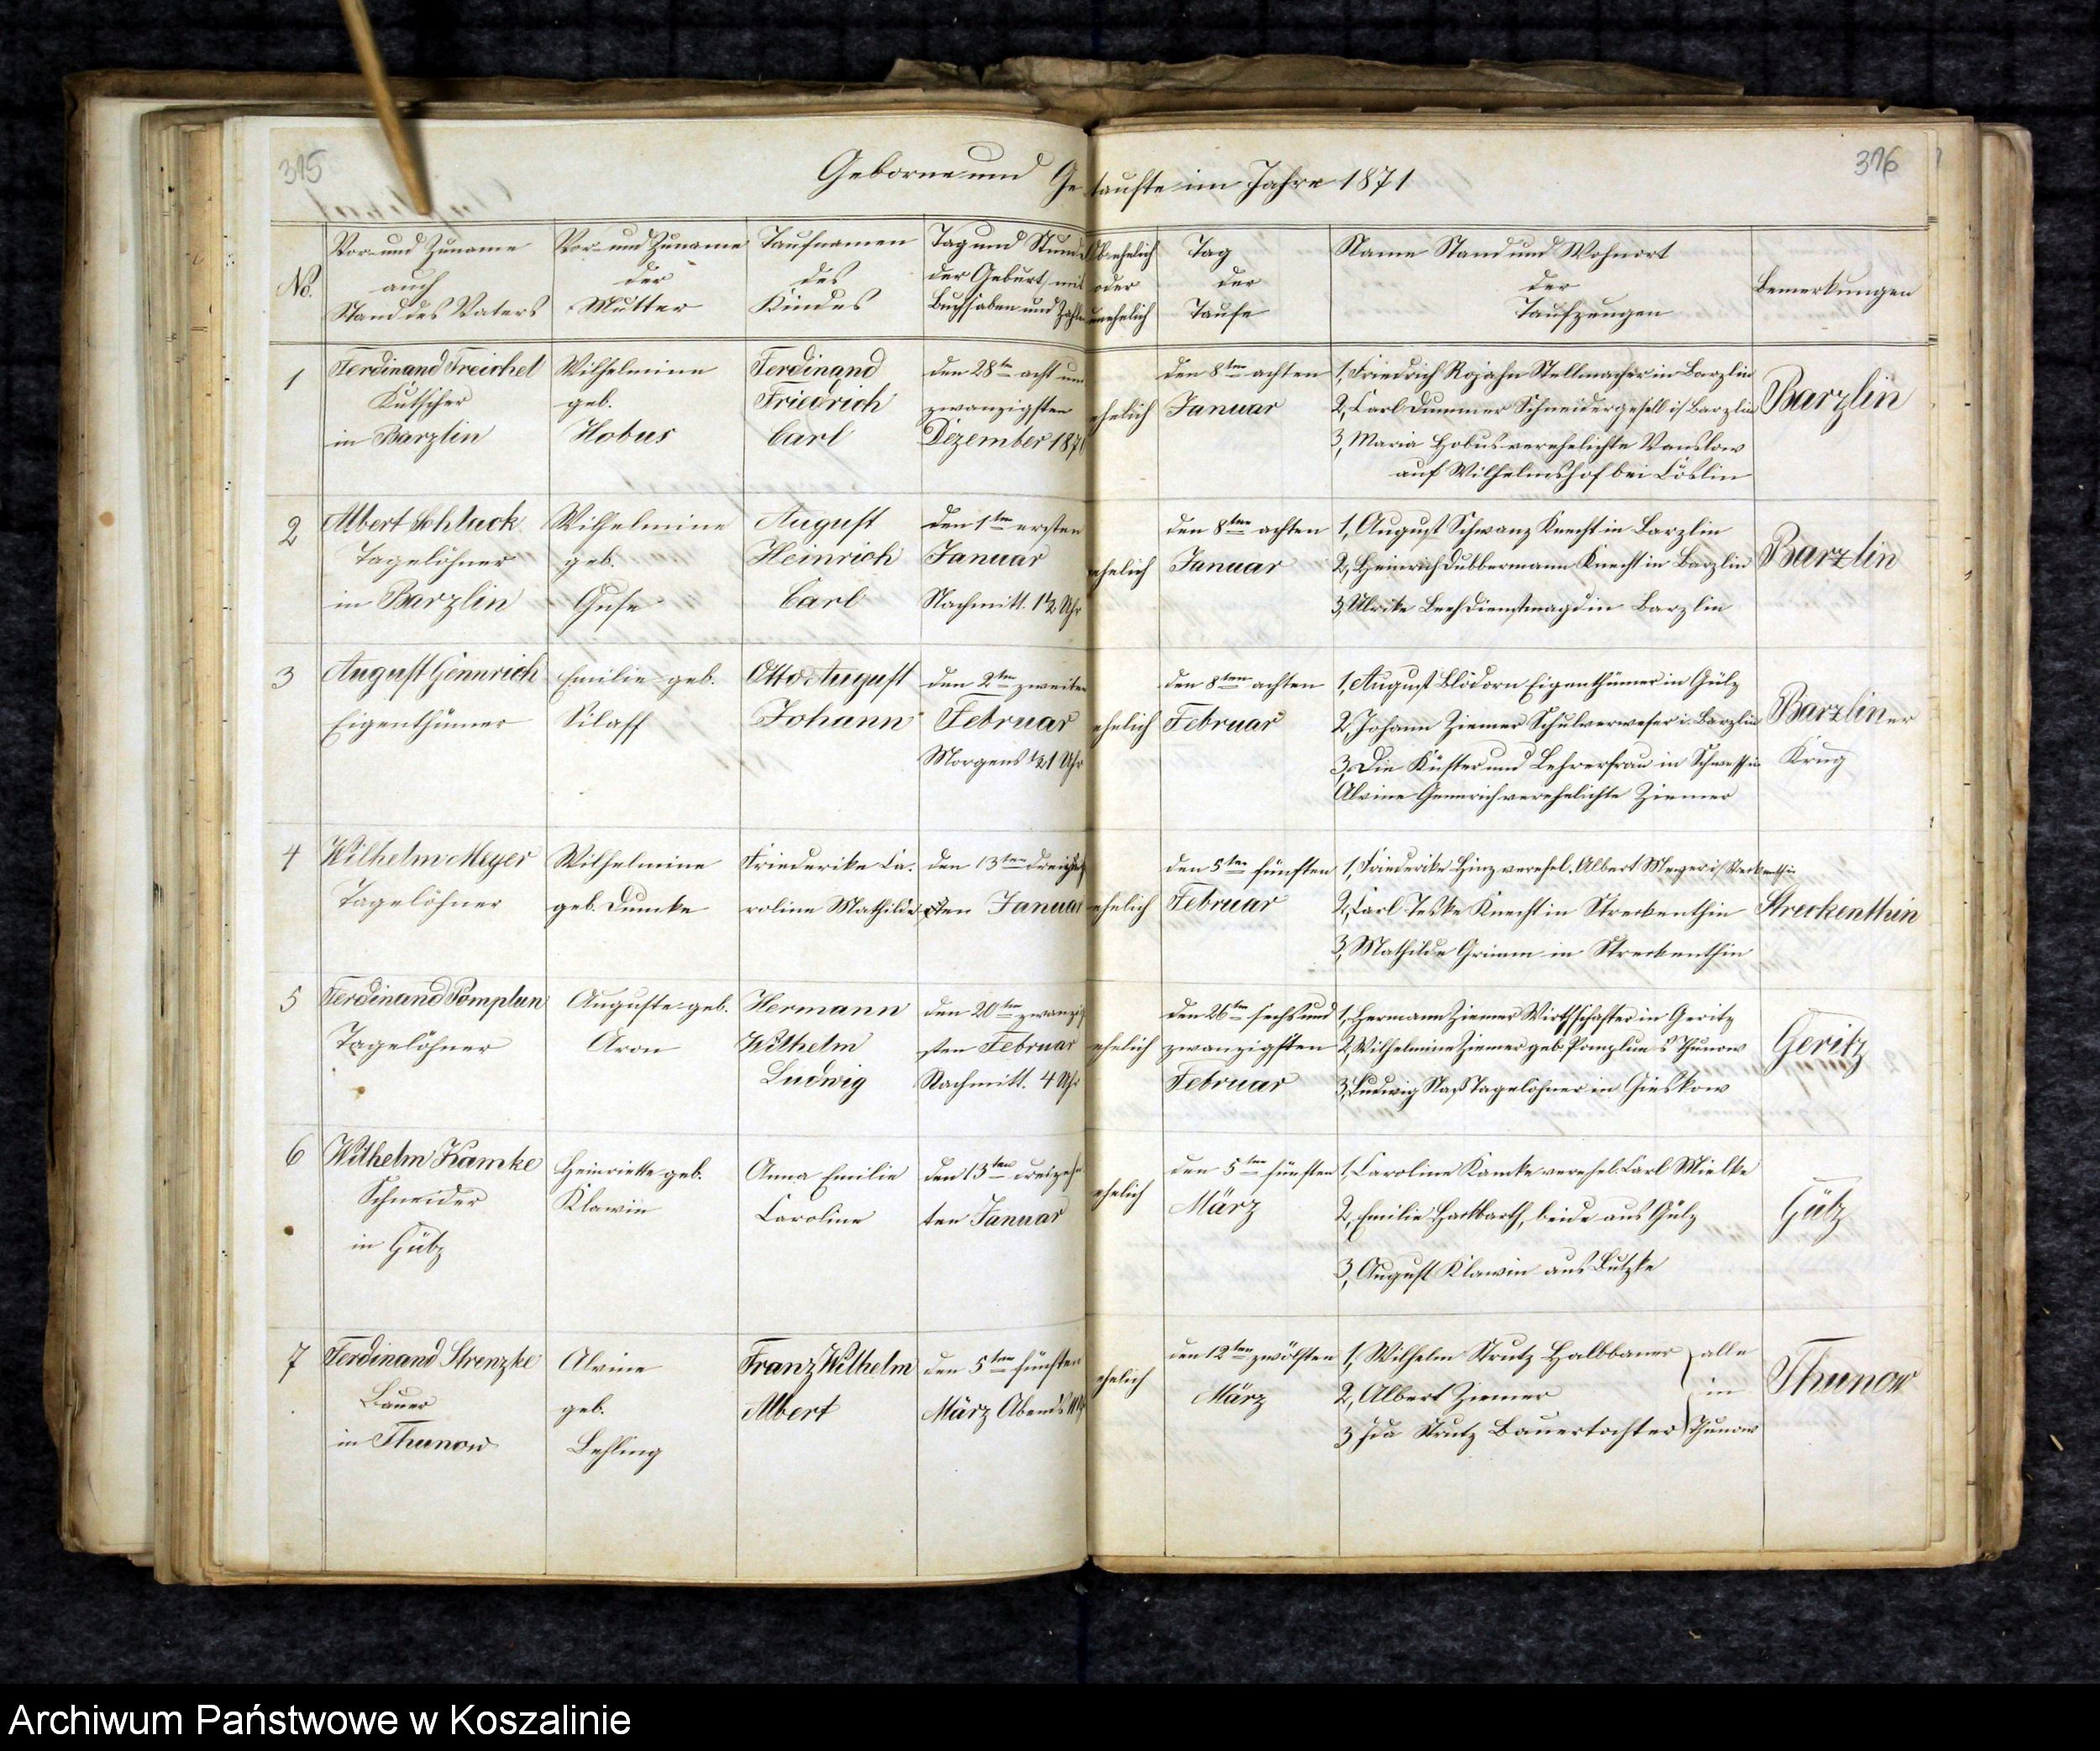 315
316
Geborne und Getaufte im Jahre 1871
No.
Vor- und Zuname
auch
Stand des Vaters
Vor- und Zuname
der
Mutter
Taufnamen
des
Kindes
Tag und Stunde
der Geburt, mit
Buchstaben und Zahlen
Ob ehelich
oder
unehelich
Tag
der
Taufe
Name Stand und Wohnort
der
Taufzeugen
Bemerkungen
1
Ferdinand Treichel
Kutscher
in Barzlin
Wilhelmine
geb.
Hobus
Ferdinand
Friedrich
Carl
den 28ten acht und
zwanzigsten
Dezember 1870
ehelich
den 8ten achten
Januar
1, Friedrich Rojahn Stellmacher in Barzlin
2, Carl Dummer Schneidergesell i/ Barzlin
3, Maria Hobus verehelichte Vanslow
auf Wilhelmshof bei Cöslin
Barzlin
2
Albert Schluck
Tagelöhner
in Barzlin
Wilhelmine
geb.
Guse
August
Heinrich
Carl
den 1ten ersten
Januar
Nachmitt. 1½ Uhr
ehelich
den 8ten achten
Januar
1, August Schwanz Knecht in Barzlin
2, Heinrich Dubbermann Knecht in Barzlin
3, Ulrike Dienstmagd in Barzlin
Barzlin
3
August Gennrich
Eigenthümer
Emilie geb.
Silaff
Otto August
Johann
den 2ten zweiten
Februar
Morgens ½1 Uhr
ehelich
den 8ten achten
Februar
1, August Blödorn Eigenthümer in Gülz
2, Johann Ziemer Schulverweser i. Barzlin
3, Die Küster und Lehrerfrau in Schwessin
Alvine Gennrich verehelichte Ziemer
Barzliner
Krug
4
Wilhelm Meyer
Tagelöhner
Wilhelmine
geb. Dumke
Friederike Ca-
roline Mathilde
den 13ten dreizehn
ten Januar
ehelich
den 5ten fünften
Februar
1, Friederike Hinz verehel. Albert Meyer i/ Streckenthin
2, Carl Teske Knecht in Streckenthin
3, Mathilde Grimm in Streckenthin
Streckenthin
5
Ferdinand Pomplun
Tagelöhner
Auguste geb.
Aron
Hermann
Wilhelm
Ludwig
den 20ten zwanzig
sten Februar
Nachmitt. 4 Uhr
ehelich
den 26ten sechs und
zwanzigsten
Februar
1, Hermann Ziemer Wirthschafter in Geritz
2, Wilhelmine Ziemer geb. Pomplun Thunow
3, Ludwig Naß Tagelöhner in Gieskow
Geritz
6
Wilhelm Kamke
Schneider
in Gülz
Heinriette geb.
Klawin
Anna Emilie
Caroline
den 13ten dreizehn
ten Januar
ehelich
den 5ten fünften
März
1, Caroline Kamke verehel. Carl Mielke
2, Emilie Hackbarth, beide aus Gülz
3, August Klawin aus Butzke
Gülz
7
Ferdinand Strenzke
Bauer
in Thunow
Alvine
geb.
Behling
Franz Wilhelm
Albert
den 5ten fünften
März Abends Uhr
ehelich
den 12ten zwölften
März
1, Wilhelm Strutz Halbbauer } alle
2, Albert Ziemer } in
3, Ida Strutz Bauertochter } Thunow
Thunow
Archiwum Państwowe w Koszalinie